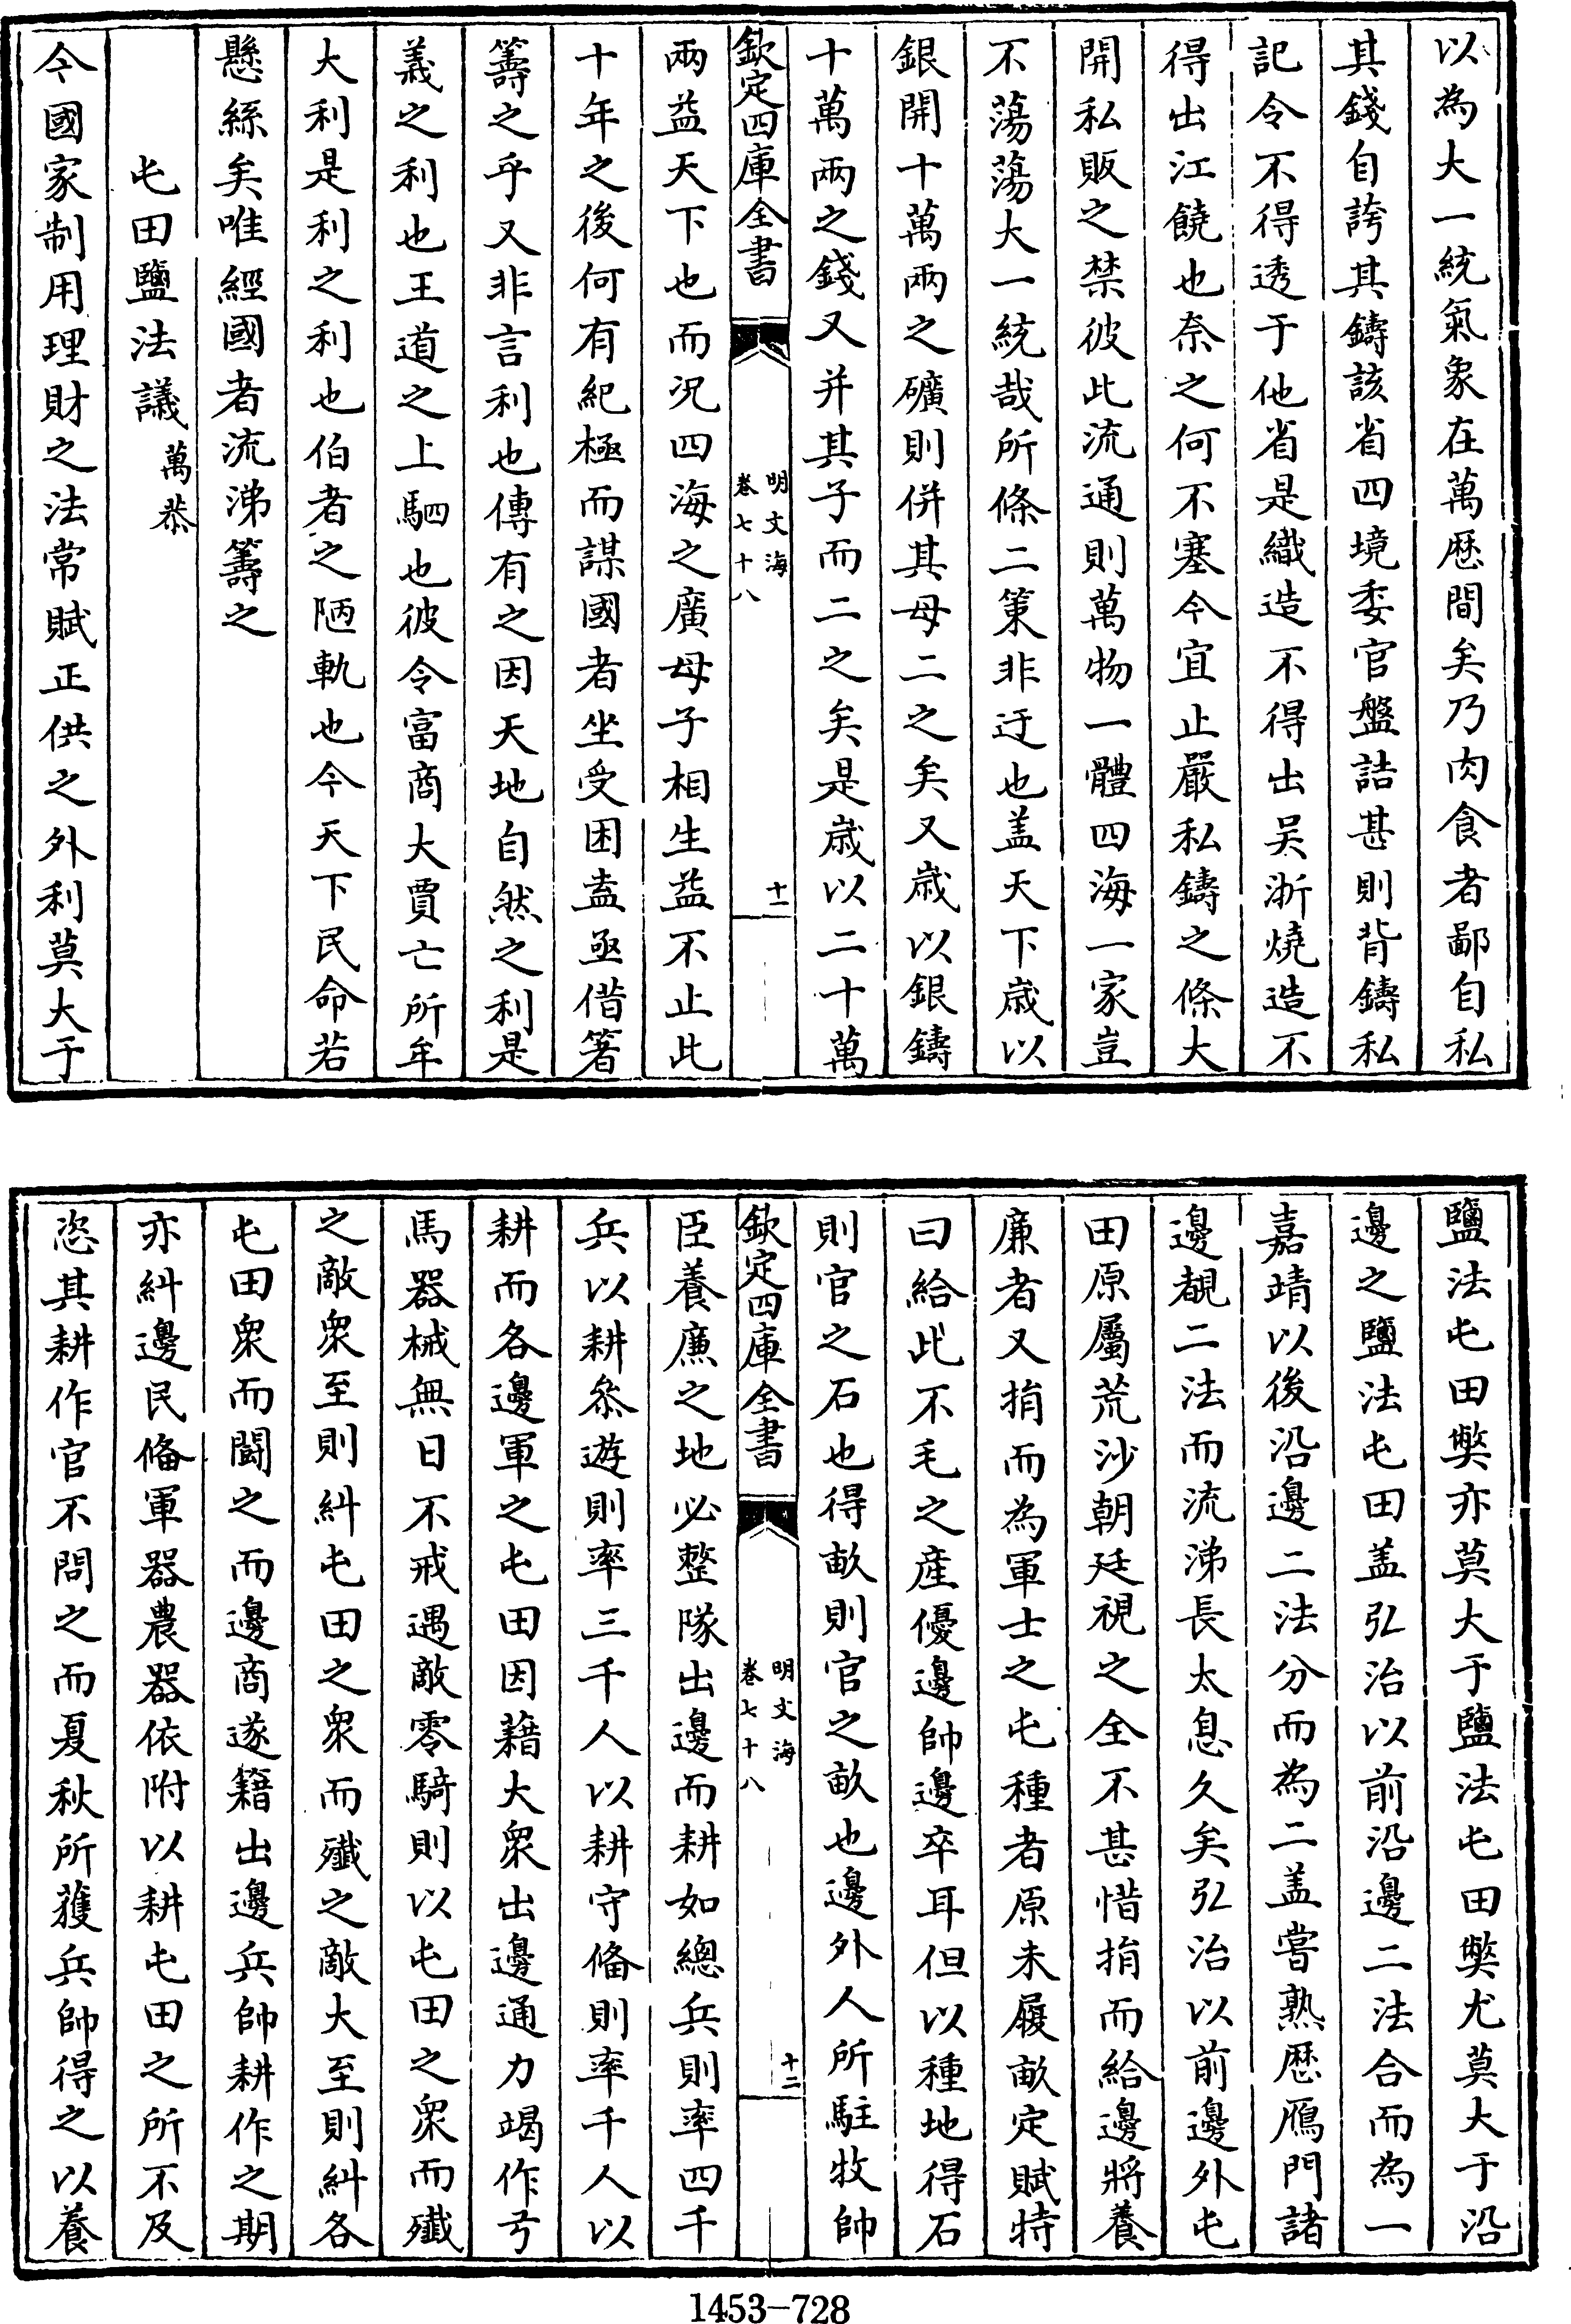 以為大一統氣象在萬厯間矣乃肉食者鄙自私
其錢自誇其鑄該省四境委官盤詰甚則背鑄私
記令不得透于他省是織造不得出吴浙燒造不
得出江饒也奈之何不塞今宜止嚴私鑄之條大
開私販之禁彼此流通則萬物一體四海一家豈
不蕩蕩大一統哉所條二策非迂也盖天下嵗以
銀開十萬兩之礦則併其母二之矣又嵗以銀鑄
十萬兩之錢又并其子而二之矣是嵗以二十萬
欽定四庫全書
明文海
卷七十八
十一
兩益天下也而况四海之廣母子相生益不止此
十年之後何有紀極而謀國者坐受困盍亟借箸
籌之乎又非言利也傳有之因天地自然之利是
義之利也王道之上駟也彼令富商大賈亡所牟
大利是利之利也伯者之陋軌也今天下民命若
懸絲矣唯經國者流涕籌之
屯田鹽法議 萬恭
今國家制用理財之法常賦正供之外利莫大于
鹽法屯田弊亦莫大于鹽法屯田弊尤莫大于沿
邊之鹽法屯田盖弘治以前沿邊二法合而為一
嘉靖以後沿邊二法分而為二盖嘗熟厯鴈門諸
邊覩二法而流涕長太息久矣弘治以前邊外屯
田原屬荒沙朝廷視之全不甚惜捐而給邊將養
廉者又捐而為軍士之屯種者原未履畝定賦特
曰給此不毛之産優邊帥邊卒耳但以種地得石
則官之石也得畝則官之畝也邊外人所駐牧帥
欽定四庫全書
明文海
卷七十八
十二
臣養廉之地必整隊出邊而耕如總兵則率四千
兵以耕叅遊則率三千人以耕守偹則率千人以
耕而各邊軍之屯田因藉大衆出邊通力竭作弓
馬器械無日不戒遇敵零騎則以屯田之衆而殲
之敵衆至則糾屯田之衆而殲之敵大至則糾各
屯田衆而鬬之而邊商遂籍出邊兵帥耕作之期
亦糾邊民偹軍器農器依附以耕屯田之所不及
恣其耕作官不問之而夏秋所獲兵帥得之以養
1453-728